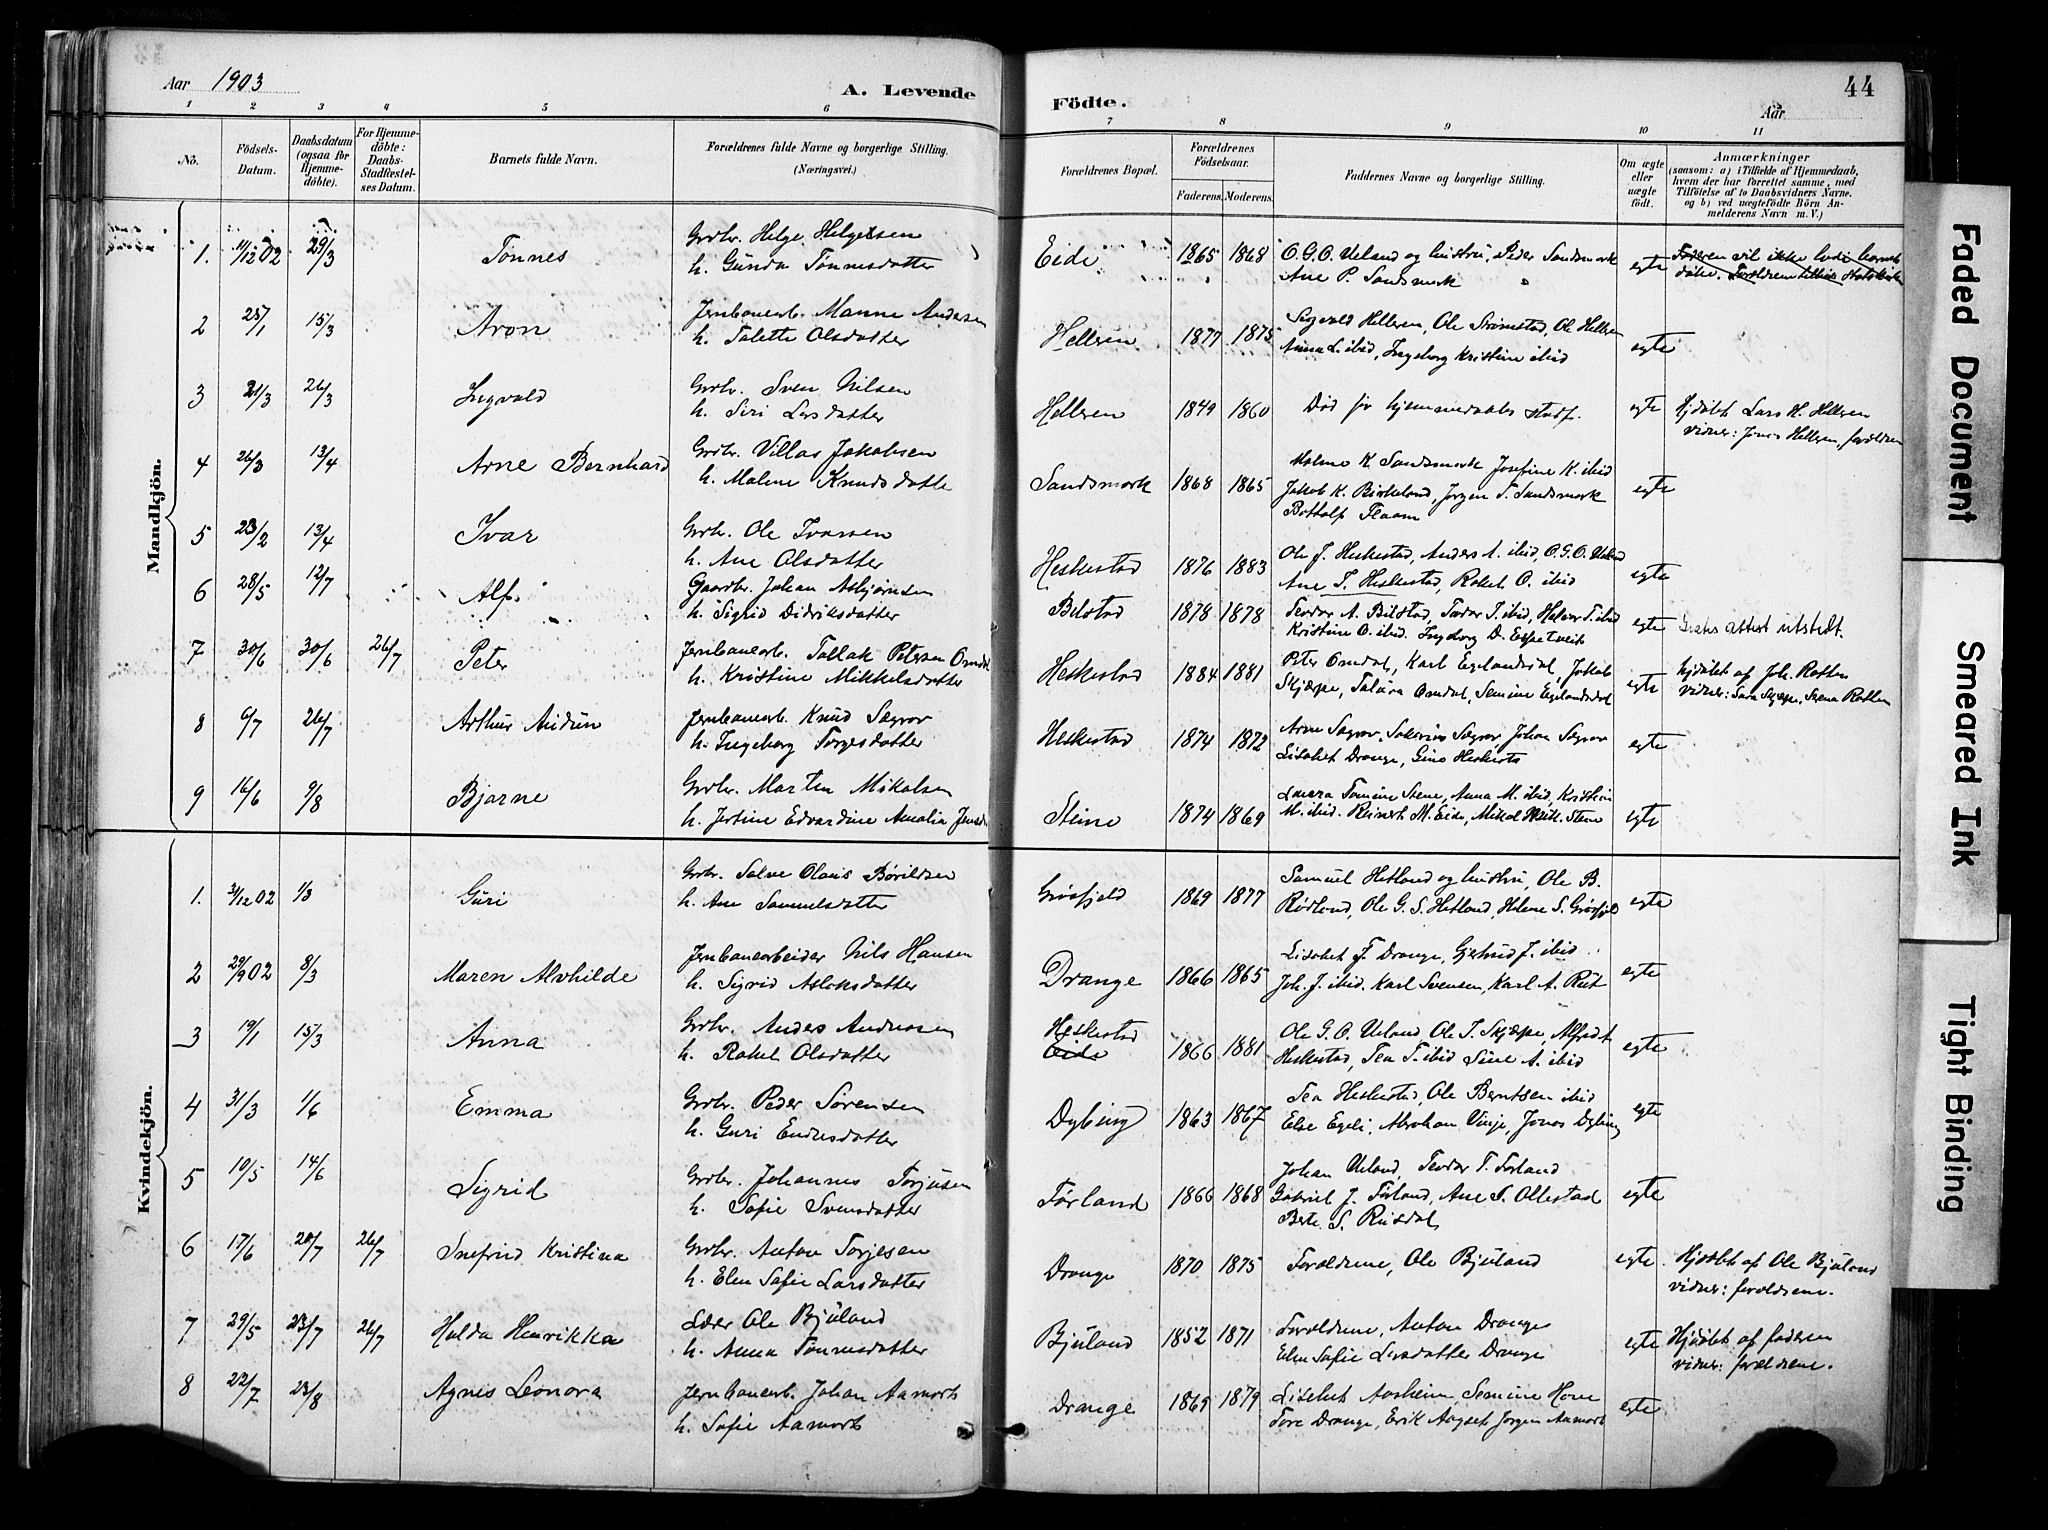 Aar 1903
A. Levende
Födte.
44
Aar
1 2 3 4 5 6 7 8 9 10 11
No.
Födsels-Datum.
Daabsdatum (ogsaa for Hjemmedöbte).
For Hjemmedöbte: Daabs-Stadfæstelses Datum.
Barnets fulde Navn.
Forældrenes fulde Navne og borgerlige Stilling. (Næringsvei.)
Forældrenes Bopæl.
Forældrenes Födselsaar.
Faderens. Moderens.
Faddernes Navne og borgerlige Stilling.
Om ægte eller uægte födt.
Anmærkninger
(saasom: a) i Tilfælde af Hjemmedaab, hvem der har forrettet samme, med Tilföielse af to Daabsvidners Navne. og b) ved uægtefödte Börn Anmelderens Navn m. V.)
Mandkjön.
1. 11/12 02 29/3 Tönnes Grdbr. Helge Helgesen
h. Gunda Tönnesdatter Eide 1865 1868 O.G.O. Ueland og hustru, Peder Sandsmork
Ane P. Sandsmork egte Faderen vil ikke lade barnet
döbe.
2 25/1 15/3 Aron Jernbanearb. Manne Andersen
h. Talette Olsdatter Helleren 1877 1875 Sigvald Helleren, Ole Strömstad, Ole Helleren
Anna L. ibid, Ingeborg Kristine ibid egte
3 21/3 26/3 Ingvald Grdbr. Sven Nilsen
h. Siri Larsdatter Helleren 1849 1860 Död för hjemmedaabs stadf. egte Hjdöbt Lars H. Helleren
vidner: Jonas Helleren, foreldren
4 26/3 13/4 Arne Bernhard Grdbr. Villas Jakobsen
h. Malene Knudsdatte Sandsmork 1868 1865 Malene K. Sandsmork Josefine K. ibid
Jakob K. Birkeland, Jorgen T. Sandsmork
Bottolf Flaam egte
5 23/2 13/4 Ivar Grdbr. Ole Ivarsen
h. Ane Olsdatter Heskestad 1876 1883 Ole J. Heskestad, Anders A. ibid, O.G.O. Ueland
Ane T. Heskestad, Rakel O. ibid egte
6 28/5 12/7 Alf. Gaardbr. Johan Asbjörnsen
h. Sigrid Didriksdatter Bilstad 1878 1878 Teodor A. Bilstad, Tudor T. ibid, Halvor T. ibid
Kristine O. ibid. Ingeborg D. Espetveit egte Gratis attest utstedt.
7 30/6 30/6 26/7 Peter Jernbanearb. Tallak Petersen Omdal
h. Kristine Mikkelsdatter Heskestad 1884 1881 Peter Omdal, Karl Egelandsdal, Jakob
Skjæpe, Talura Omdal, Semine Egelandsdal egte hjdöbt af Joh. Rotten
vidner: Sara Skjæpe, Serena Rotten
8 6/7 26/7 Arthur Audun Jernbanearb. Knud Sægrov
h. Ingeborg Torgesdatter Heskestad 1874 1872 Arne Sægrov, Sakarias Sægrov Johan Sægrov
Lisabet Drange, Gina Heskests egte
9 16/6 9/8 Bjarne Grdbr. Martin Mikalsen
h. Jertine Edvardine Amalia Jensd. Steine 1874 1869 Laura Tomine Stene, Anna M. ibid, Kristian
M. ibid. Reinert M. Eide, Mikal Stene egte
Kvindekjön.
1. 3/12 02 1/3 Guri Grdbr. Salve Olaus Börildsen
h. Ane Samuelsdatter Grösfjeld 1869 1877 Samuel Hetland og hustru, Ole B.
Rödland, Ole G. S. Hetland, Helene S. Grösfjeld egte
2 29/9 02 8/3 Maren Alvhilde Jernbanearbeider Nils Hansen
h. Sigrid Aslaksdatter Drange 1866 1865 Lisabet J. Drange, Gjertrud J. ibid
Joh. J. ibid. Karl Svensen, Karl A. Rut egte
3 19/1 15/3 Anna Grdbr. Anders Andreasen
h. Rakel Olsdatter Heskestad
Eide 1866 1881 Ole G. O. Ueland, Ole T. Skjæpe, Alfred T.
Heskestad, Tea T. ibid Sine A. ibid egte
4 31/3 1/6 Emma Grdbr. Peder Sörensen
h. Guri Endresdatter Dybing 1863 1867 Tea Heskestad, Ole Berntsen ibid
Else Egeli, Abraham Vinje, Jonas Dybing egte
5 10/5 14/6 Sigrid Grdbr. Johannes Torjusen
h. Sofie Svensdatter Förland 1866 1868 Johan Ueland, Teodor T. Forland
Gabriel J. Förland, Ane S. Ollestad
Berte S. Rusdal egte
6 17/6 20/7 26/7 Snefrid Kristina Grdbr. Anton Torjesen
h. Elen Sofie Larsdatter Drange 1870 1875 Foreldrene, Ole Bjuland egte. Hjdöbt af Ole Bjuland
vidner: foreldrene.
7 29/5 23/7 26/7 Hulda Henrikka Lærer Ole Bjuland
h. Anna Tönnesdatter Bjuland 1852 1871 Foreldrene, Anton Drange
Elen Sofie Larsdatter Drange egte Hjdöbt af faderen
vidner: foreldrene.
8 22/7 23/8 Agnes Leonora Jernbanearb. Johan Aamodt
h. Sofie Aamodt Drange 1869 1879 Lisabet Aasheim, Semine Hove
Tore Drange, Erik Aagset, Jorgen Aamodt egte
Faded Document
Smeared Ink
Tight Binding